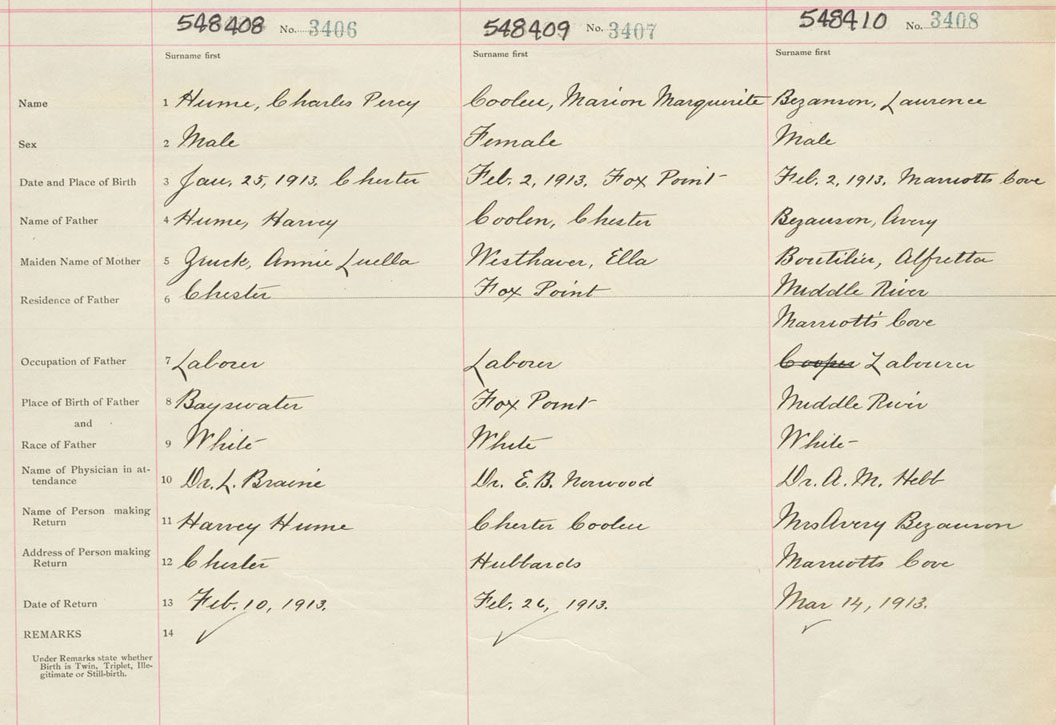 548408 No. 3406 548409 No. 3407 548410 No. 3408
Surname first Surname first Surname first
Name 1 Hume, Charles Percy Coolen, Marion Marguerite Bezanson, Laurence
Sex 2 Male Female Male
Date and Place of Birth 3 Jan. 25, 1913. Chester Feb. 2, 1913. Fox Point Feb. 2, 1913. Marriotts Cove
Name of Father 4 Hume, Harvey Coolen, Chester Bezanson, Avery
Maiden Name of Mother 5 Zinck, Annie Luella Westhaver, Ella Boutilier, Alfretta
Residence of Father 6 Chester Fox Point Middle River
Marriott's Cove
Occupation of Father 7 Laborer Laborer Cooper Labourer
Place of Birth of Father 8 Bayswater Fox Point Middle River
and
Race of Father 9 White White White
Name of Physician in at-
tendance 10 Dr. L. Braine Dr. E. B. Norwood Dr. A. M. Hebb
Name of Person making
Return 11 Harvey Hume Chester Coolen Mrs Avery Bezanson
Address of Person making
Return 12 Chester Hubbards Marriotts Cove
Date of Return 13 Feb. 10, 1913. Feb. 26, 1913. Mar 14, 1913.
REMARKS 14
Under Remarks state whether
Birth is Twin, Triplet, Ille-
gitimate or Still-birth.